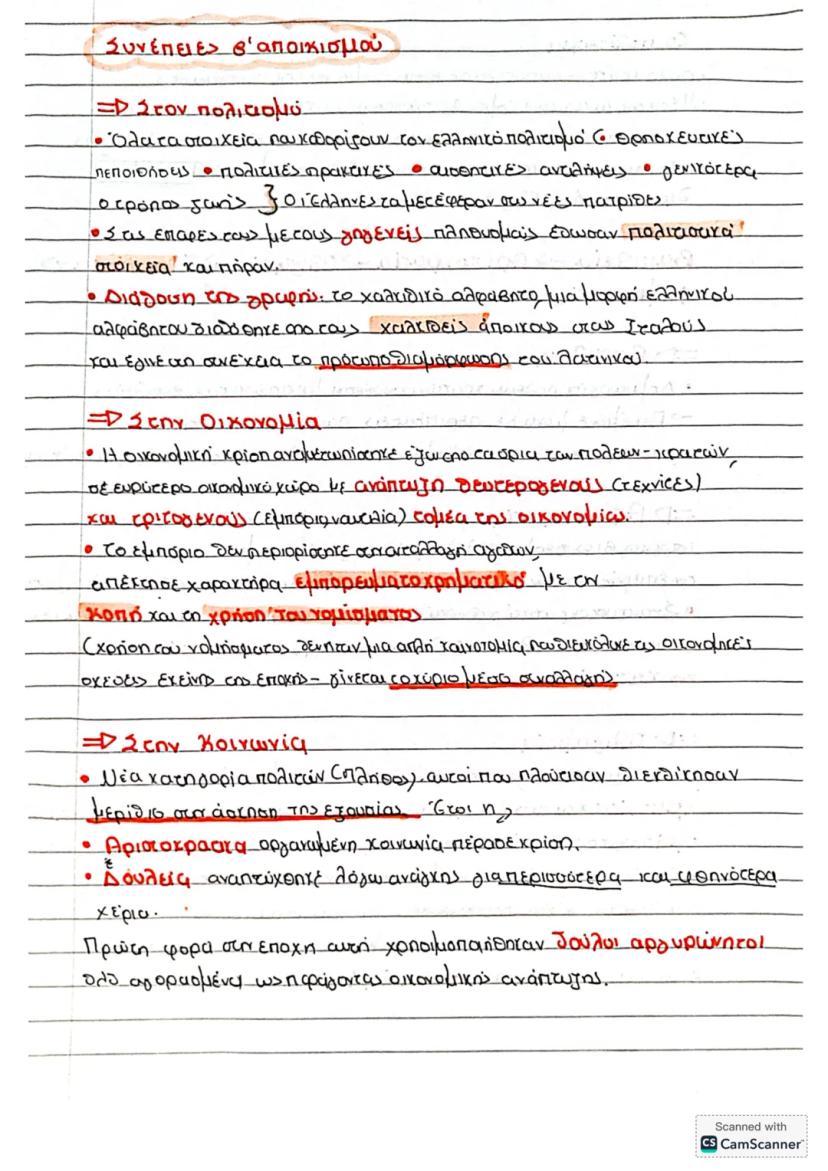 Συνέπειες β' αποικισμού
⇒ Στον πολιτισμό
• Όλα τα στοιχεία που καθορίζουν τον ελληνικό πολιτισμό (• θρησκευτικές
πεποιθήσεις • πολιτικές πρακτικές • αισθητικές αντιλήψεις • γενικότερα
ο τρόπος ζωής } Οι Έλληνες τα μετέφεραν στις νέες πατρίδες.
• Στις επαφές τους με τους γηγενείς πληθυσμούς έδωσαν πολιτιστικά
στοιχεία και πήραν.
• Διάδοση της γραφής: το χαλκιδικό αλφάβητο, μια μορφή ελληνικού
αλφάβητου διαδόθηκε από τους χαλκιδείς άποικους στους Ιταλούς
και έγινε στη συνέχεια το πρότυπο διαμόρφωσης του λατινικού.
⇒ Στην Οικονομία
• Η οικονομική κρίση αντιμετωπίστηκε έξω από τα όρια των πόλεων-κρατών,
σε ευρύτερο οικονομικό χώρο με ανάπτυξη δευτερογενούς (τεχνίτες)
και τριτογενούς (εμπόριο, ναυτιλία) τομέα της οικονομίας.
• Το εμπόριο δεν περιορίστηκε στην ανταλλαγή αγαθών,
απέκτησε χαρακτήρα εμπορευματοχρηματικό με την
κοπή και τη χρήση του νομίσματος
(χρήση του νομίσματος δεν ήταν μια απλή καινοτομία που διευκόλυνε τις οικονομικές
σχέσεις εκείνης της εποχής - γίνεται το κύριο μέσο συναλλαγής.
⇒ Στην Κοινωνία
• Νέα κατηγορία πολιτών (πλήθος), αυτοί που πλούτισαν διεκδίκησαν
μερίδιο στην άσκηση της εξουσίας. Έτσι η
• Αριστοκρατικά οργανωμένη κοινωνία πέρασε κρίση.
• Δουλεία αναπτύχθηκε λόγω ανάγκης για περισσότερα και φθηνότερα
χέρια.
Πρώτη φορά στην εποχή αυτή χρησιμοποιήθηκαν δούλοι αργυρώνητοι
δλδ αγορασμένοι ως παράγοντας οικονομικής ανάπτυξης.
Scanned with
CS CamScanner